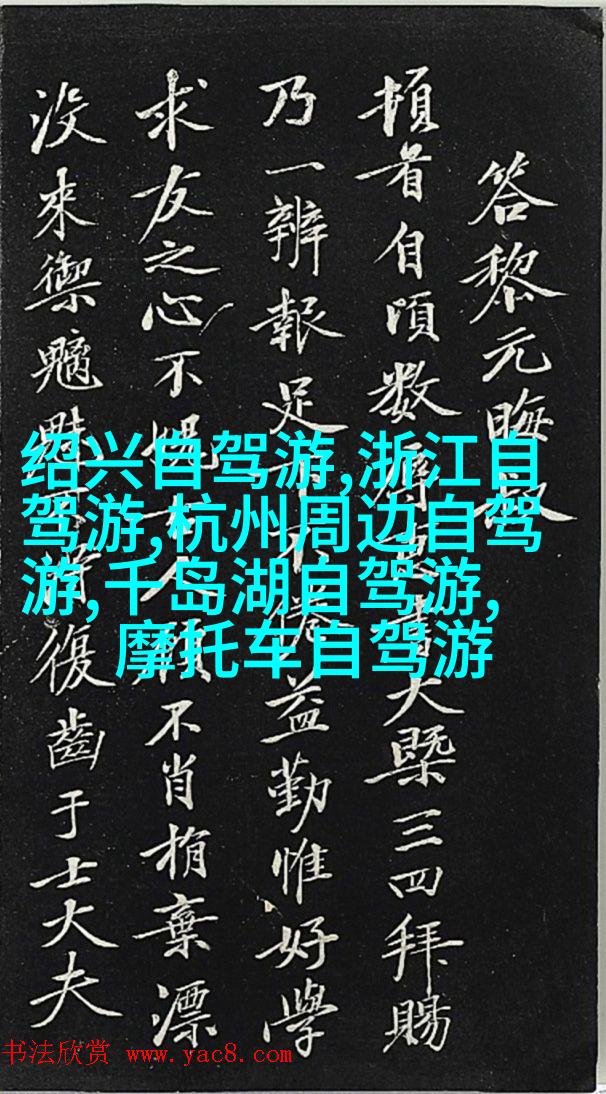 答黎元晦叔
頓首自頃数
書大槩三四拜賜
乃一辨報足
倦益勤惟好學
求友之心不愧
人顧不肖捐棄漂
没來禦魑魅
復齒于士大夫
绍兴自驾游,浙江自
驾游,杭州周边自驾
游,千岛湖自驾游,
摩托车自驾游
书法欣赏 www.yac8.com